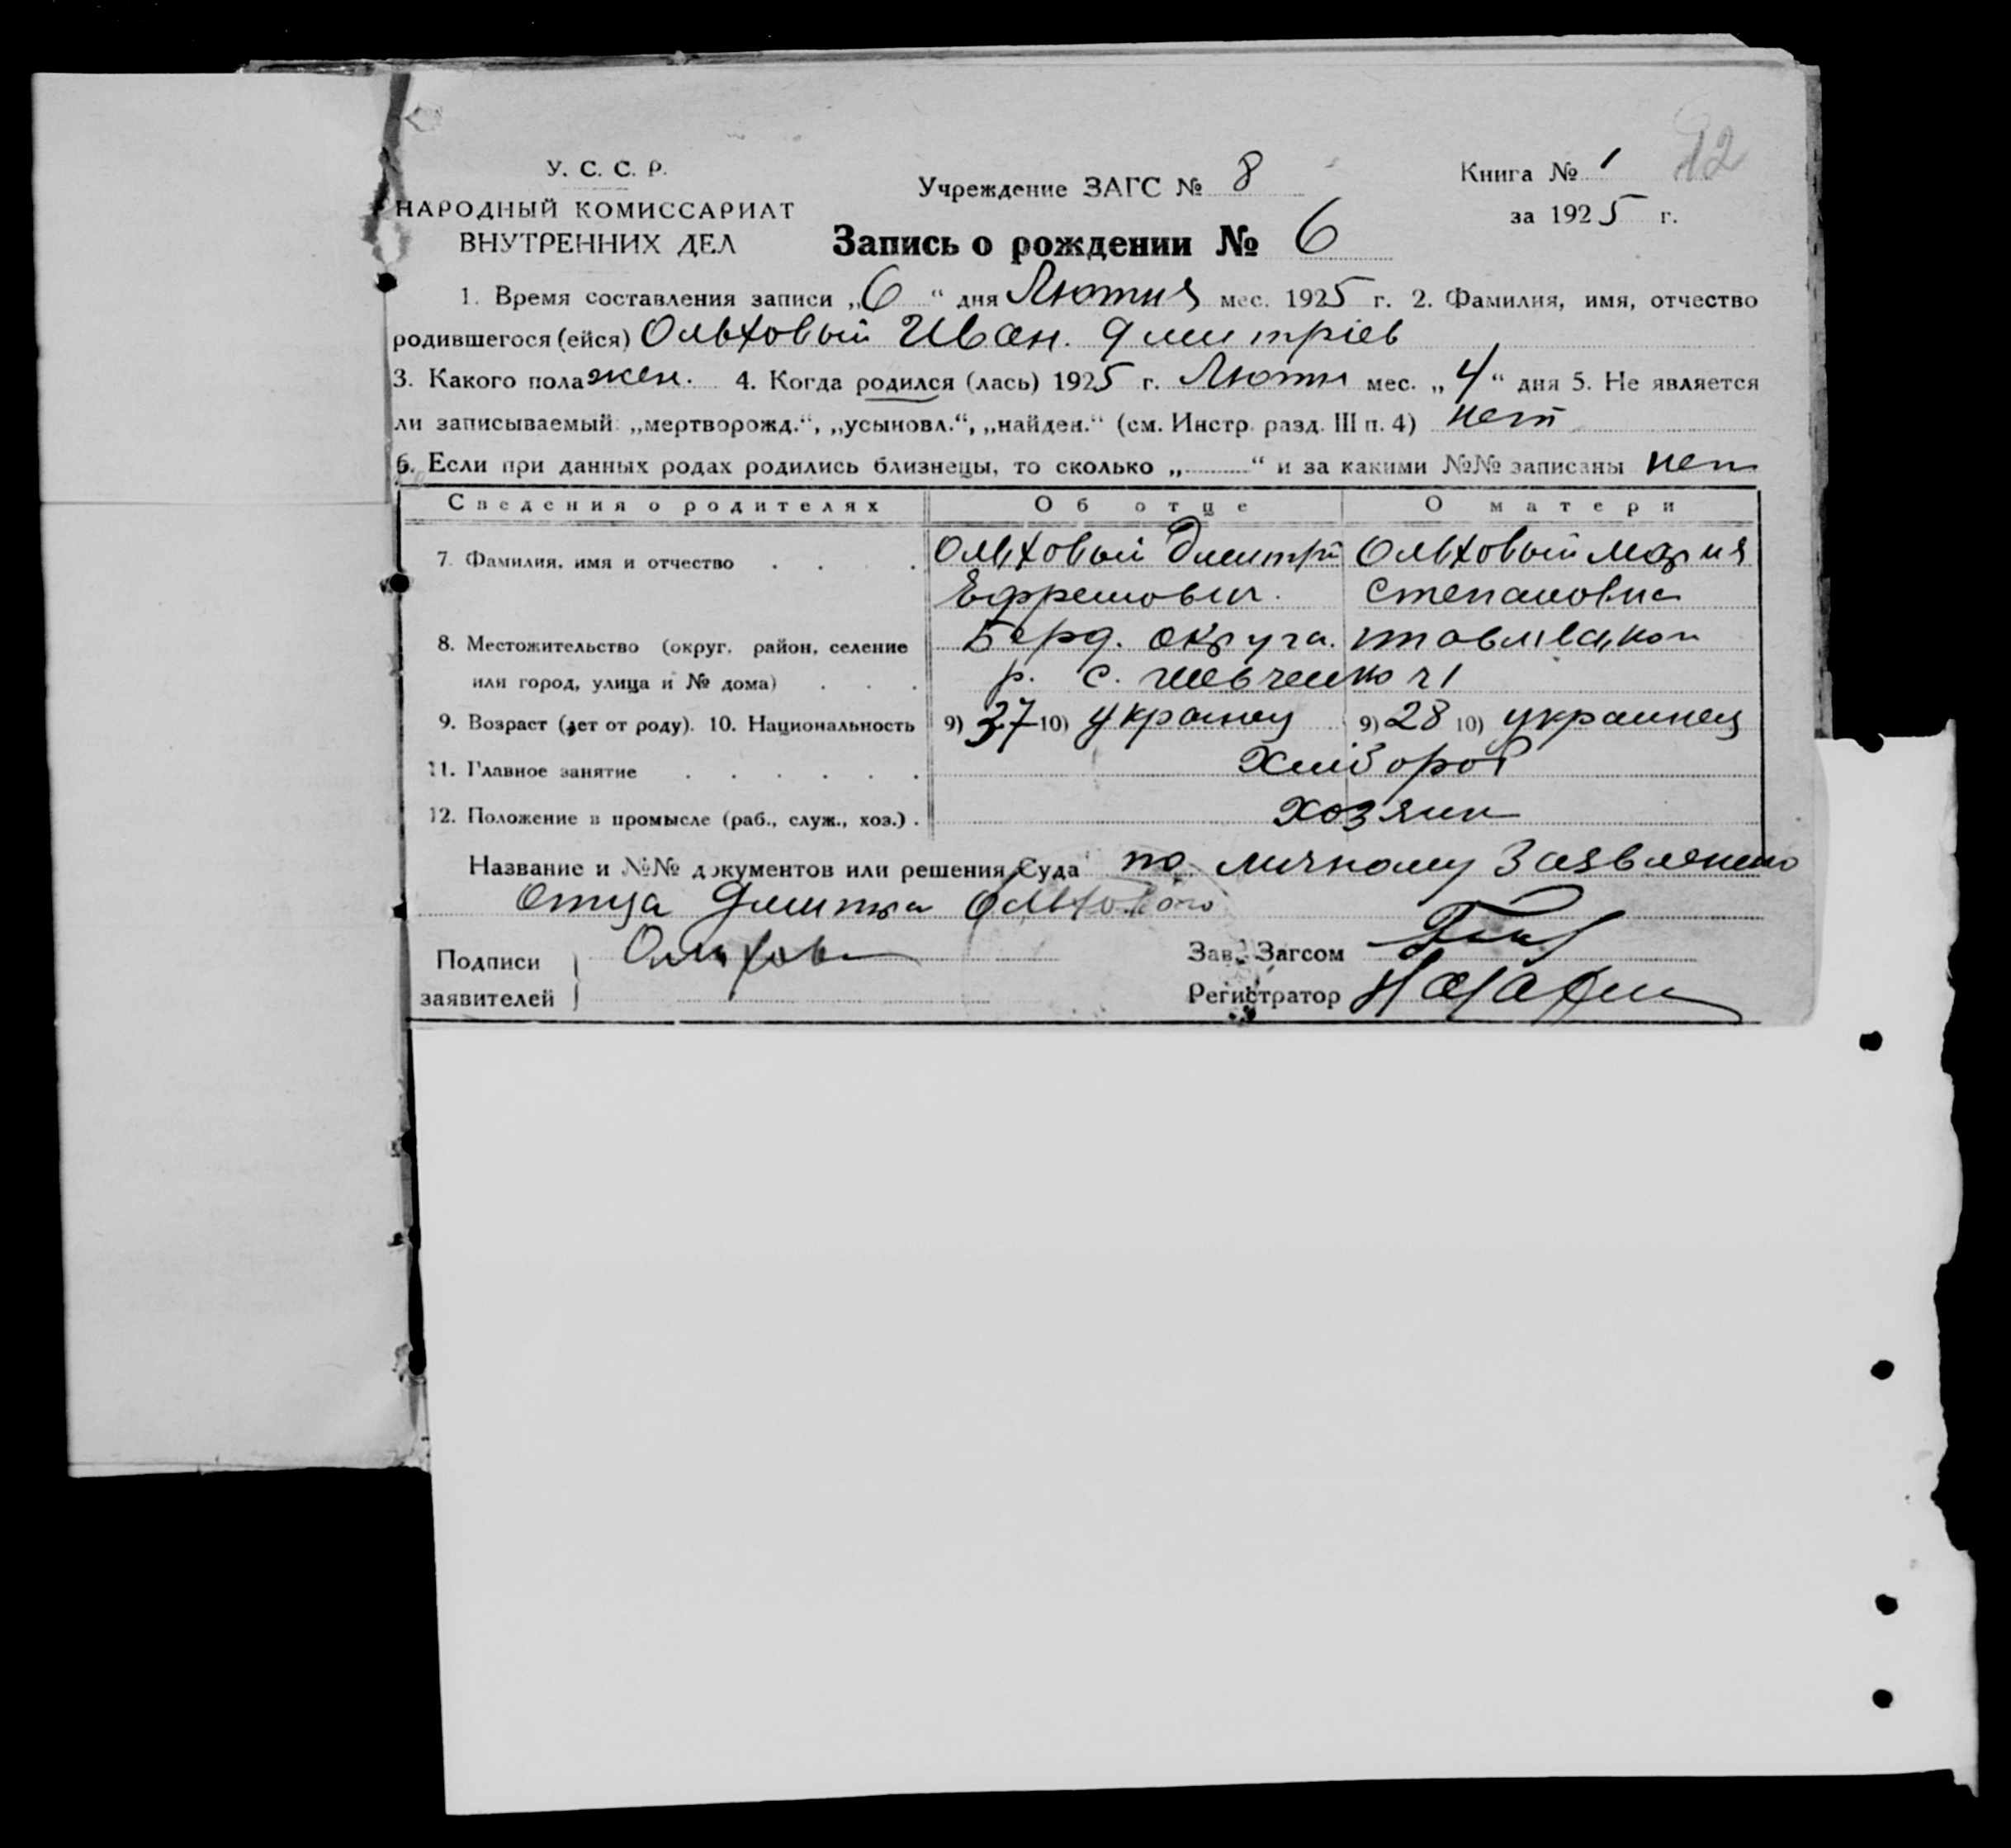 42
У. С. С. Р.
НАРОДНЫЙ КОМИССАРИАТ
ВНУТРЕННИХ ДЕЛ
Учреждение ЗАГС № 8
Книга № 1
за 1925 г.
Запись о рождении № 6
1. Время составления записи „6“ дня Лютня мес. 1925 г. 2. Фамилия, имя, отчество
родившегося (ейся) Ольховый Иван. Дмитріев
3. Какого пола жен. 4. Когда родился (лась) 1925 г. Лютня мес. „4“ дня 5. Не является
ли записываемый: „мертворожд.“, „усыновл.“, „найден.“ (см. Инстр. разд. III п. 4) нет
6. Если при данных родах родились близнецы, то сколько „ “ и за какими №№ записаны нет
Сведения о родителях Об отце О матери
7. Фамилия, имя и отчество Ольховый Дмитрій Ольховый Мария
Ефремович. Степановна
8. Местожительство (округ, район, селение Берд. округа.
или город, улица и № дома) р. с. Шевченко
9. Возраст (лет от роду). 10. Национальность 9) 37 10) Украинец 9) 28 10) украинец
11. Главное занятие Хлібороб
12. Положение в промысле (раб., служ., хоз.) хозяин
Название и №№ документов или решения Суда по личному Заявлению
Отца Дмитра Ольхового
Подписи Ольхови Зав. Загсом
заявителей Регистратор